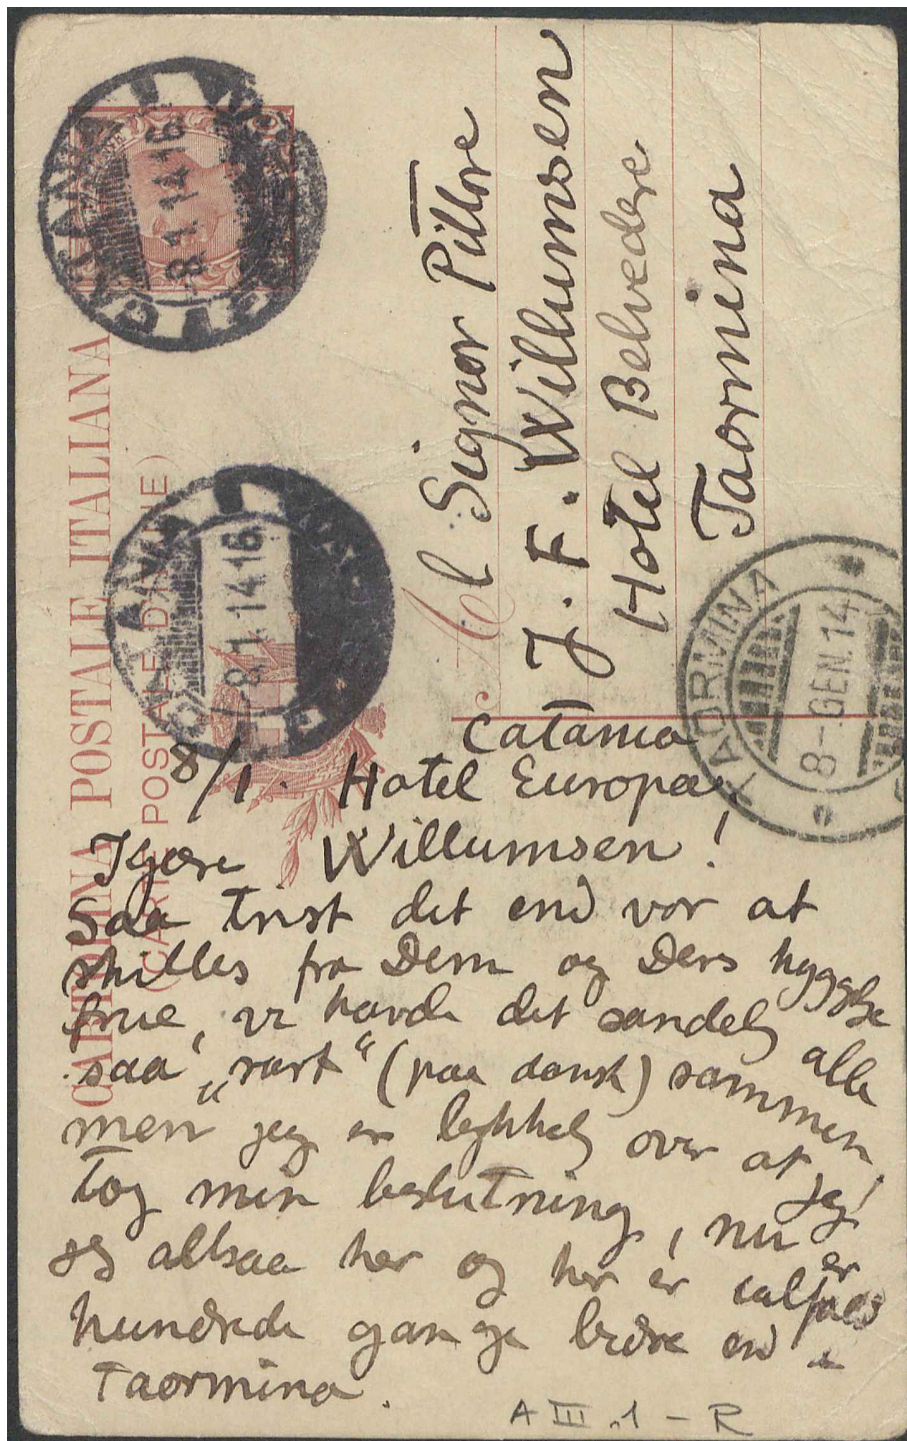 CARTOLINA POSTALE ITALIANA
(CARTE POSTALE D'ITALIE)
8.1.14.16
8.1.14.16
TAORMINA
8-GEN.14
Al Signor Pittore
J. F. Willumsen
Hotel Belvedere
Taormina
Catania
8/1. Hotel Europa,
Kjære Willumsen!
Saa trist det end var at
skilles fra Dem og Deres hyggelige
frue, vi havde det sandelig alle
saa "rart" (paa dansk) sammen,
men jeg er lykkelig over at jeg
tog min beslutning, nu er
jeg altsaa her og her er ialfald
hundrede gange bedre end i
Taormina.
A III.1-R